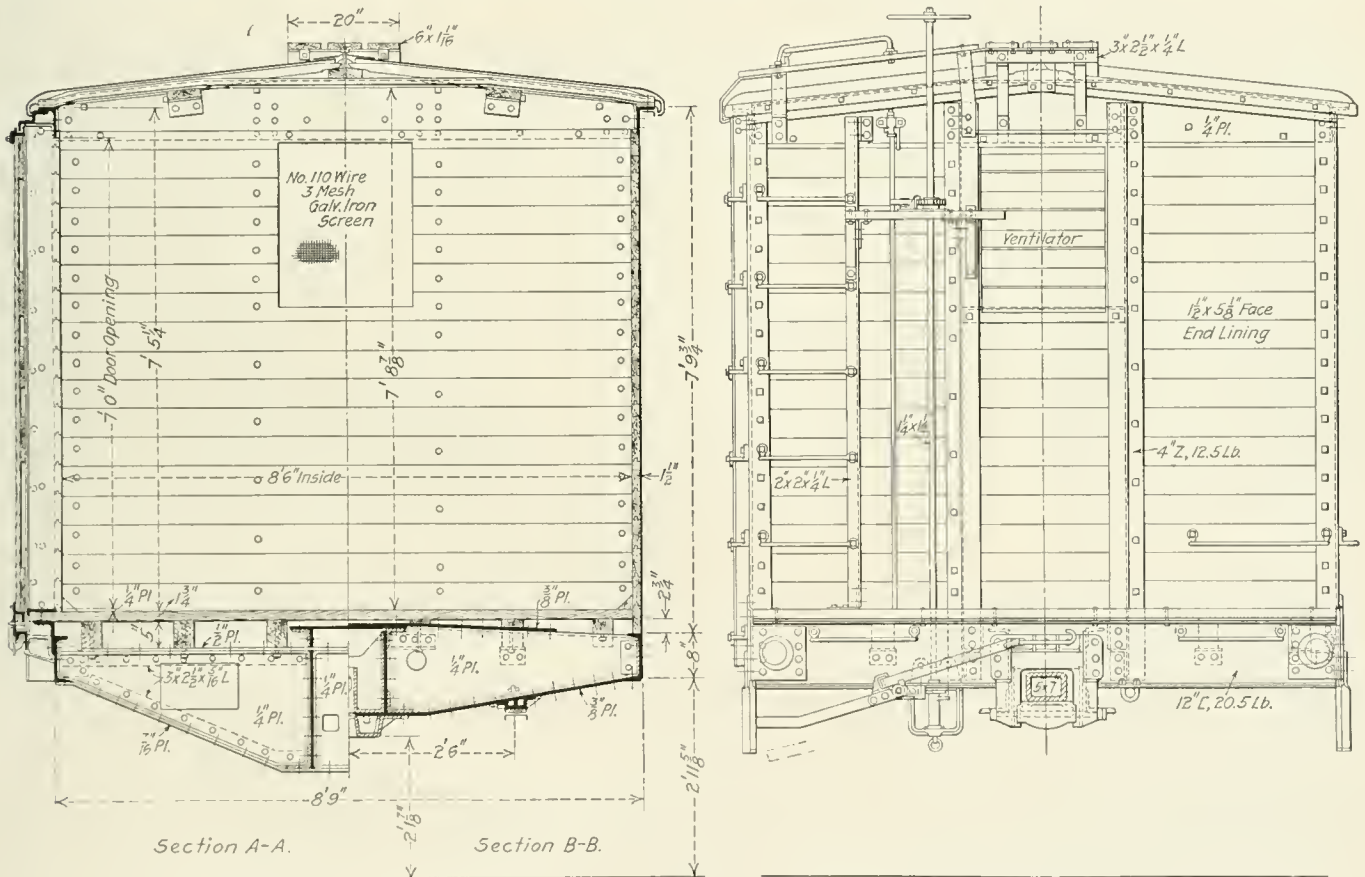 20"
6"x1 1/16"
No. 110 Wire
3 Mesh
Galv. Iron
Screen
7'0" Door Opening
7' 5 1/4"
7' 8 7/8"
7' 9 3/4"
8'6" Inside
1 1/2"
1/4" Pl
1 3/4"
3/8" Pl.
2 3/4"
5"
1/2" Pl.
3"x2 1/2"x 5/16" L
1/4" Pl.
1/4" Pl.
1/4" Pl.
8"
7/16" Pl.
3/8" Pl.
2'6"
8'9"
2' 1 7/8"
2' 11 5/8"
Section A-A.
Section B-B.
3"x2 1/2"x 1/4" L
1/4" Pl.
Ventilator
1 1/2" x 5 1/8" Face
End Lining
4" Z, 12.5 Lb.
2"x2"x 1/4" L
5x7
12" [, 20.5 Lb.